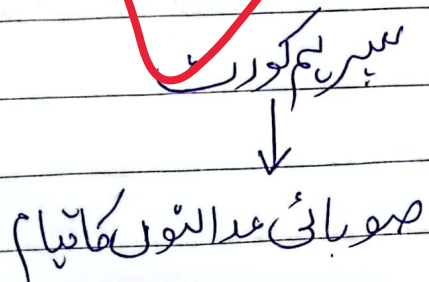 سپریم کورٹ
↓
صوبائی عدالتوں کا قیام